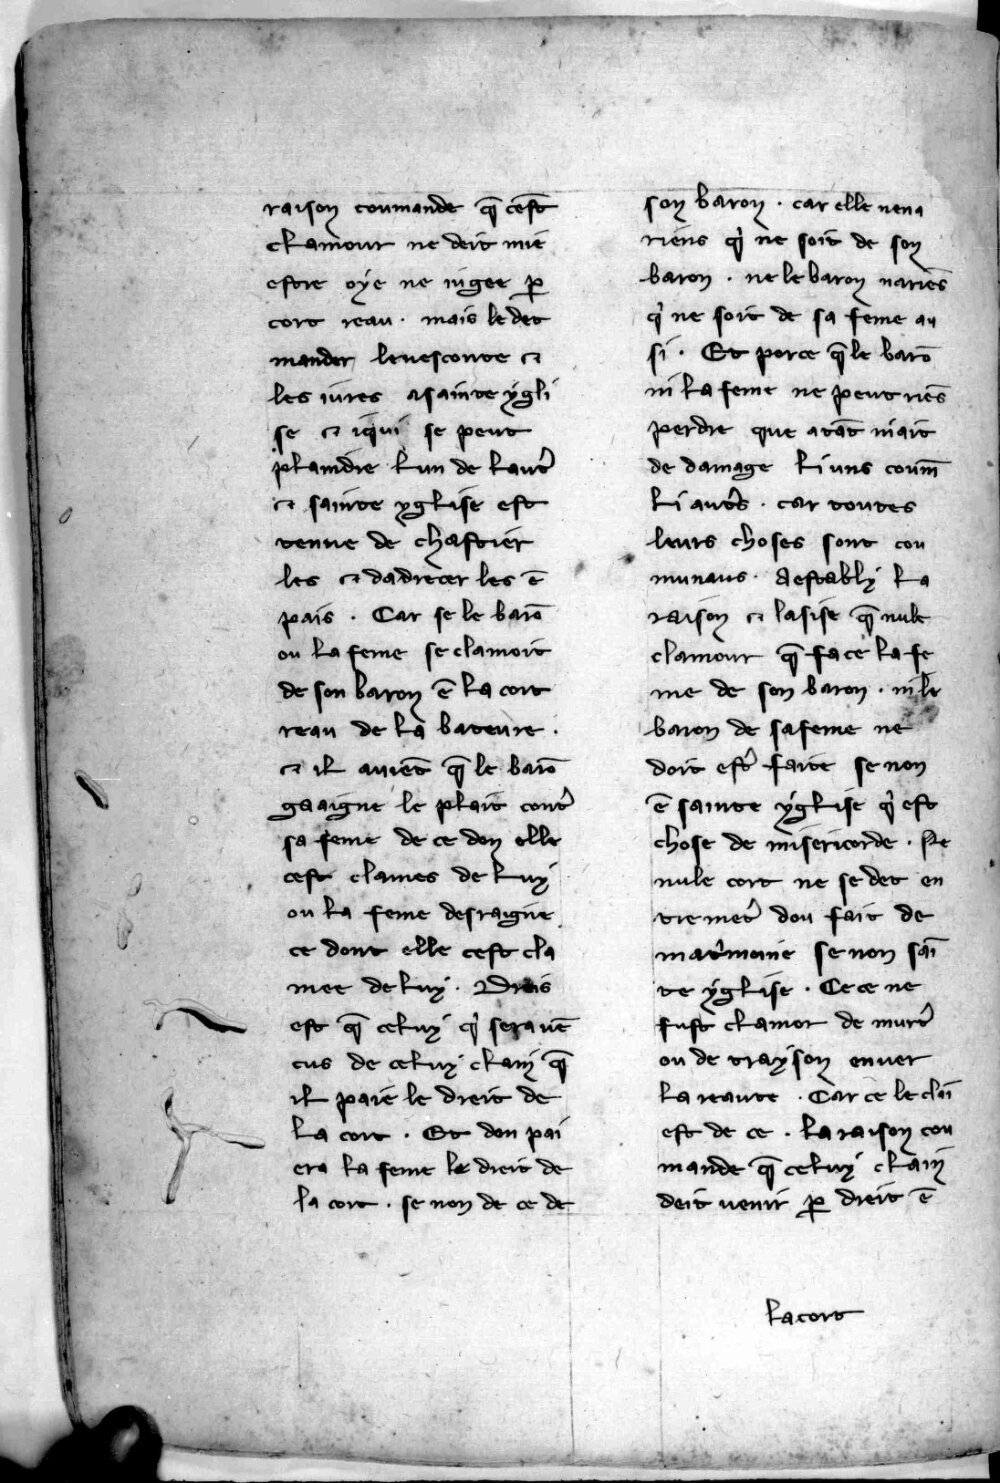 raison coumande q̄ cest
clamour ne deit mie
estre oye ne iugee ꝑ
cort reau . mais le det
mander levesconte ⁊
les iures asainte ygli
se ⁊ iqui se peut
plaindre lun de laut᾽
⁊ sainte yglise est
tenue de chastier
les ⁊ dadrecer les ē
pais . Car se le barō
ou la feme se clamoit
de son baron ē la cort
reau de la bateure .
⁊ il avient̄ q̄ le barō
gaaigne le plait cont᾽
sa feme de ce don elle
cest clames de luy
ou la feme desraigne
ce dont elle cest cla
mee de luy . Drois
est q̄ celuy q᾽ sera vē
cus de celuy claim q̄
il paie le dreit de
la cort . Et don pai
era la feme le dreit de
la cort . se non de ce de
son baron . car elle nen a
riens q᾽ ne soit de son
baron . ne le baron na riēs
q᾽ ne soit de sa feme au
si . Et por ce q̄ le barō
ni la feme ne peut riēs
perdre que atāt ni ait
de damage li uns coum̄
li aut᾽s . car toutes
leurs choses sont cou
munaus . A establi la
raison ⁊ lasise q̄ nule
clamour q̄ face la fe
me de son baron . ni le
baron de sa feme ne
doit est᾽ faite se non
ē sainte yglise q᾽ est
chose de misericorde . Ne
nule cort ne se det en
tremet᾽ dou fait de
mat᾽moine se non sāī
te yglise . Ce ce ne
fust clamor de murt᾽
ou de trayson enver
la reaute . Car ce le clāī
est de ce . la raison cou
mande q̄ celuy claim
deit venir ꝑ dreit ē
la cort